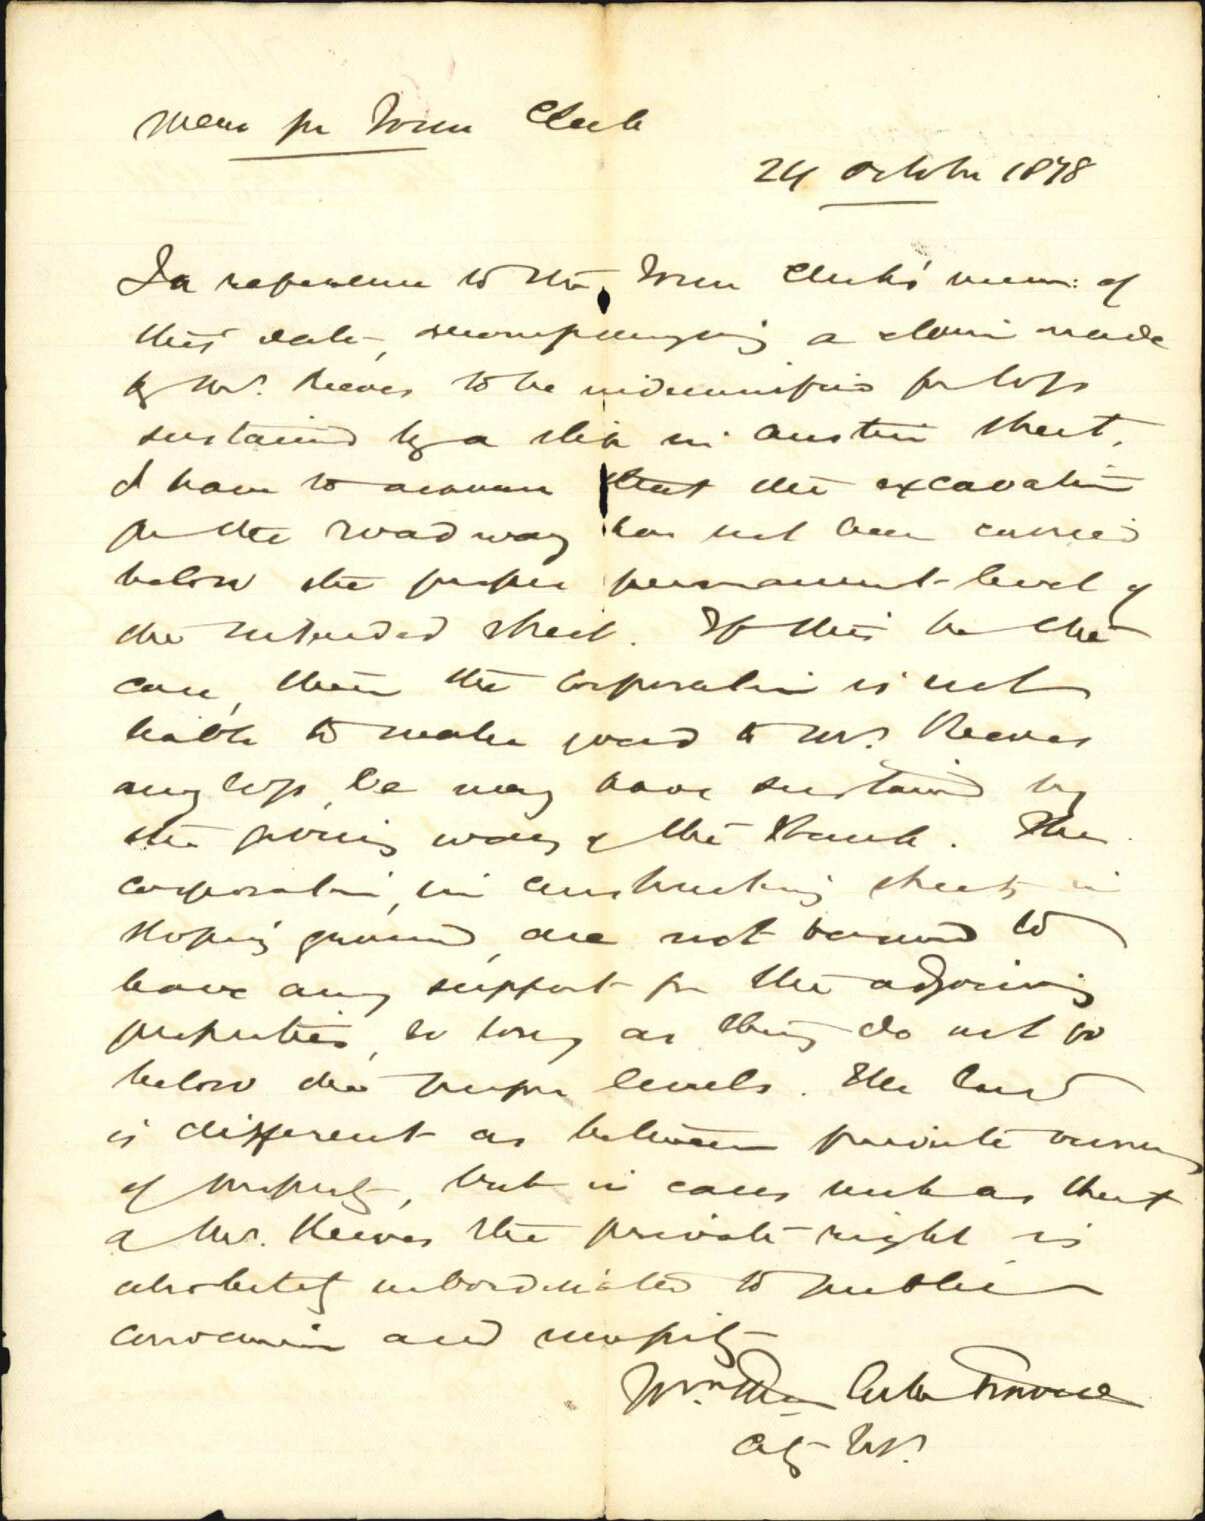 Memo for Town Clerk
24 October 1878
In reference to the Town Clerk's memo: of
this date, accompanying a claim made
by Mr. Reeves to be indemnified for loss
sustained by a slip in Austin Street,
I have to assume that the excavation
for the roadway has not been carried
below the proper permanent level of
the intended street. If this be the
case, then the Corporation is not
liable to make good to Mr. Reeves
any loss he may have sustained by
the giving way of the Bank. The
corporation, in constructing streets in
sloping ground, are not bound to
leave any support for the adjoining
properties, so long as they do not go
below the proper levels. The law
is different as between private owners
of property, but in cases such as that
of Mr. Reeves the private right is
absolutely subordinated to public
convenience and necessity
Wm. Travers
City Sol.